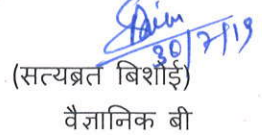 30/7/19
(सत्यब्रत बिशोई)
वैज्ञानिक बी